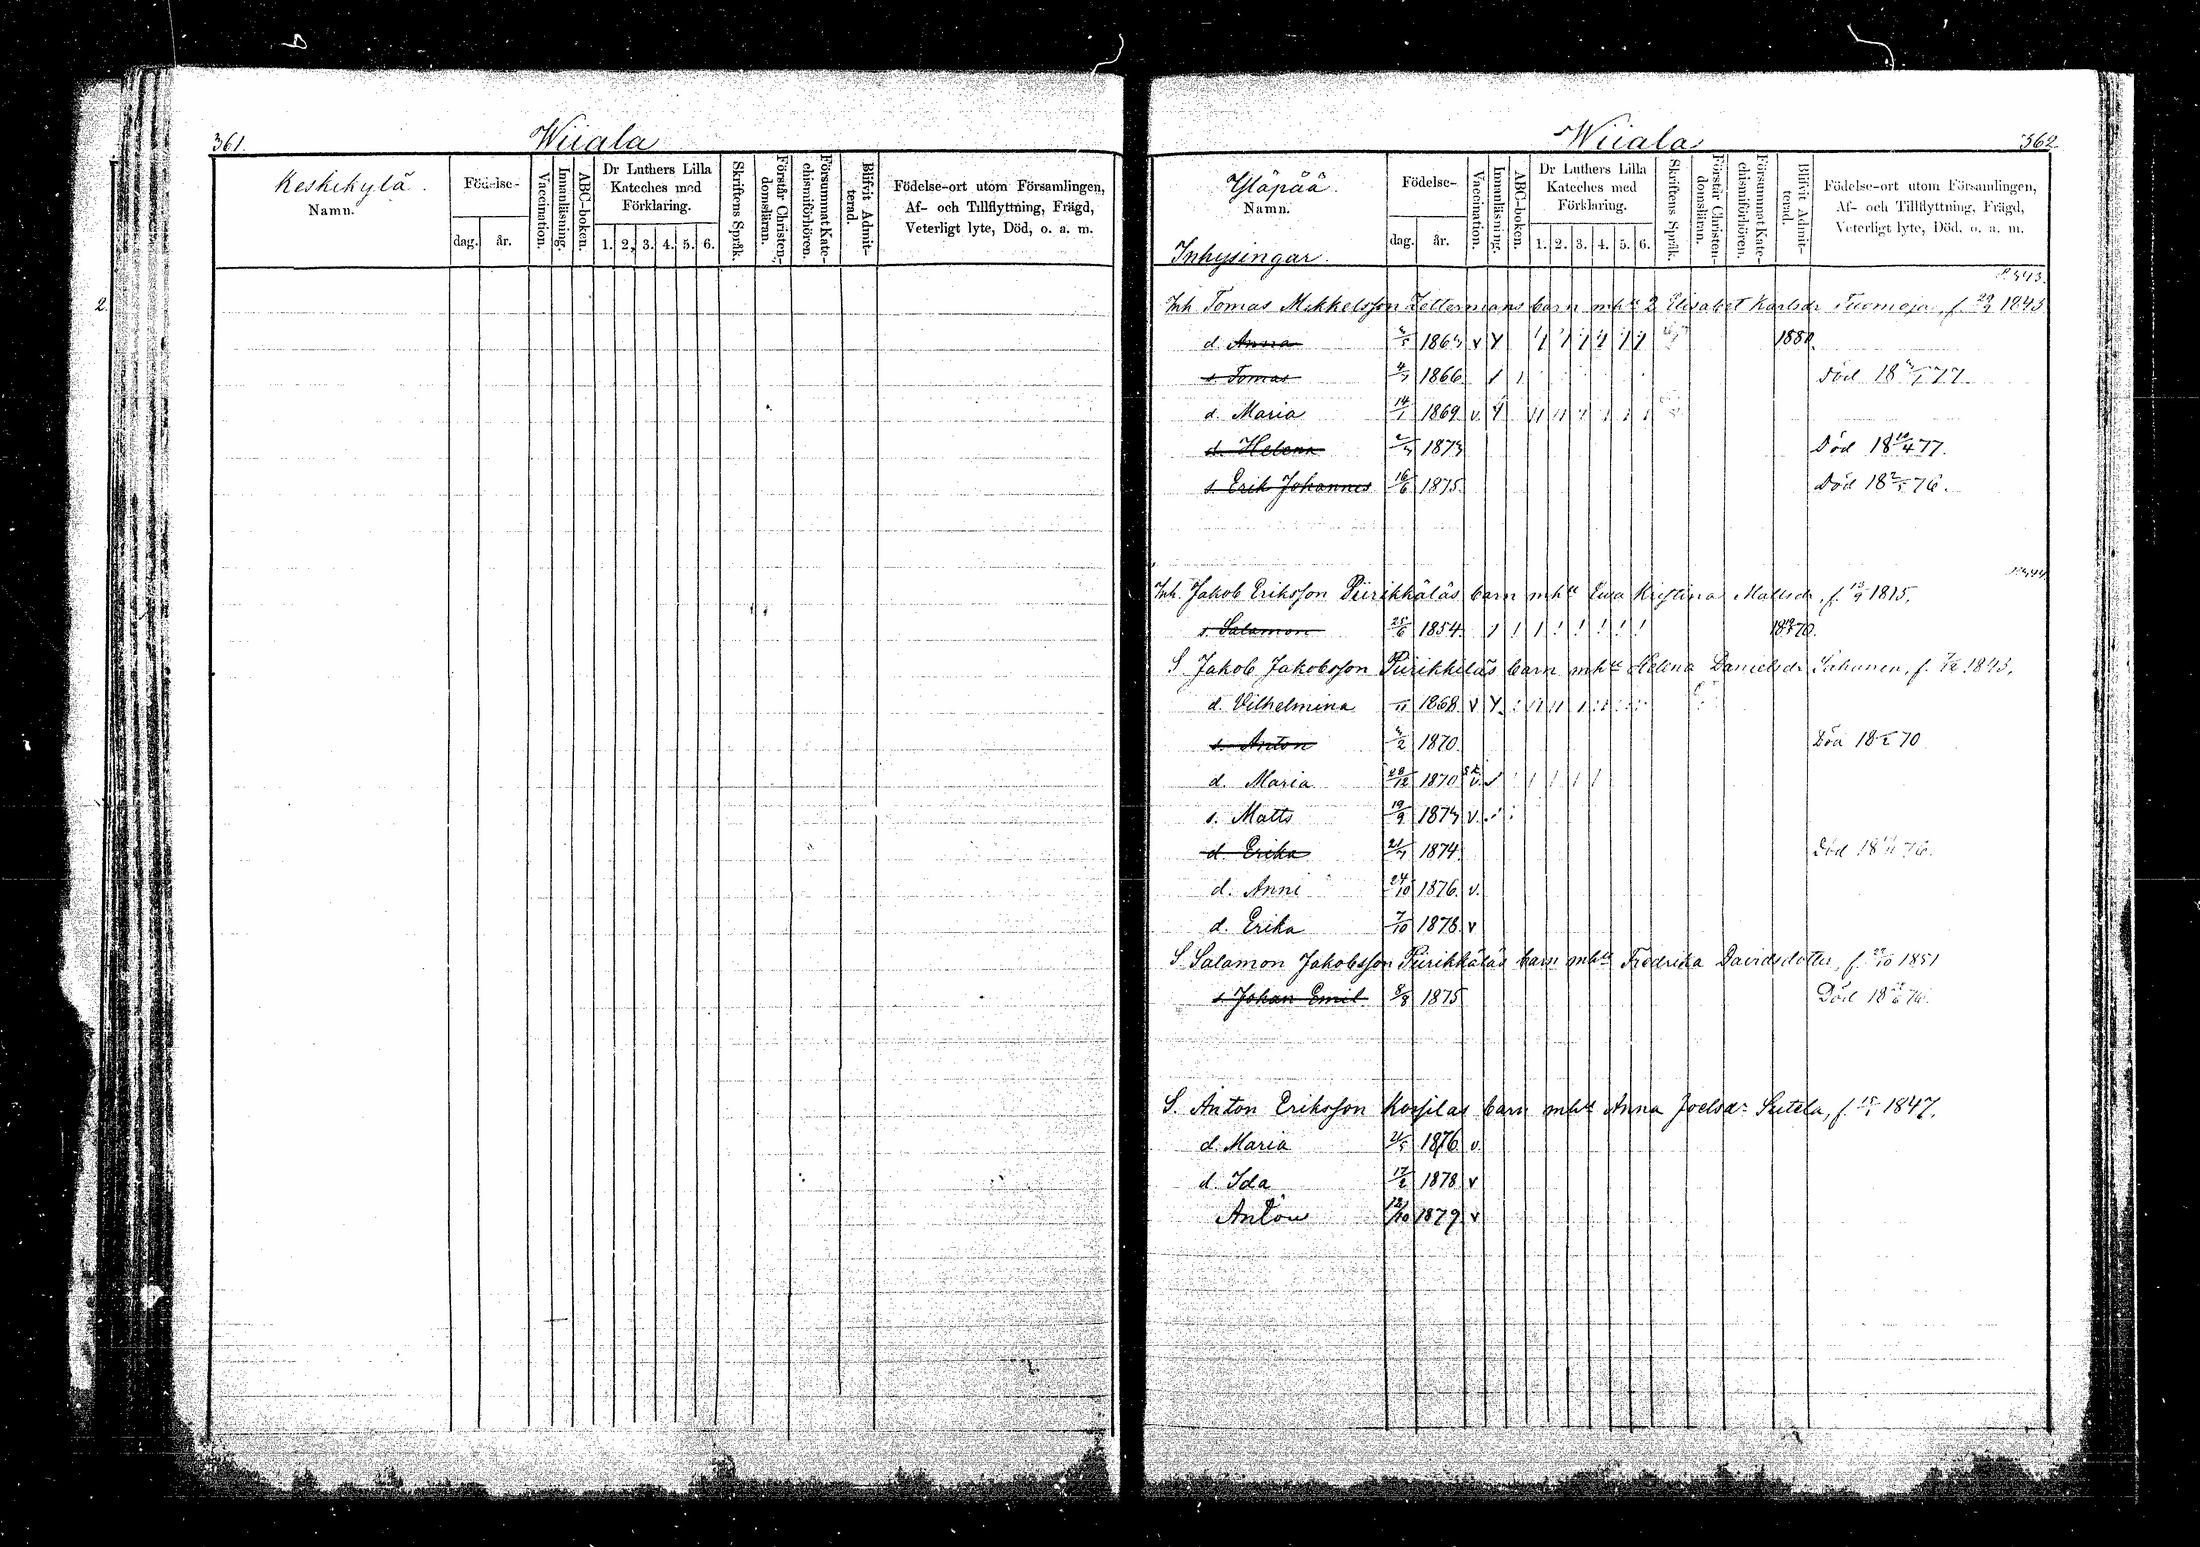 361.
Wiiala
Keskikylä.
Namn.
Födelse-
dag. år.
Vaccination.
Innanläsning.
ABC-boken.
Dr Luthers Lilla Kateches med Förklaring.
1. 2. 3. 4. 5. 6.
Skriftens Språk.
Förstår Christendomsläran.
Försummat Katechismiförhören.
Blifvit Admitterad.
Födelse-ort utom Församlingen,
Af- och Tillflyttning, Frägd,
Veterligt lyte, Död, o. a. m.
2.
Wiiala
362
Yläpää.
Namn.
Inhysingar.
Födelse-
dag. år.
Vaccination.
Innanläsning.
ABC-boken.
Dr Luthers Lilla Kateches med Förklaring.
1. 2. 3. 4. 5. 6.
Skriftens Språk.
Förstår Christendomsläran.
Försummat Katechismiförhören.
Blifvit Admitterad.
Födelse-ort utom Församlingen,
Af- och Tillflyttning, Frägd,
Veterligt lyte, Död, o. a. m.
Inh Tomas Mikkelsson Zettermans barn mhu 2 Elisabet Karlsdr f. 1843
d. Anna 1863 v 1880.
s. Tomas 1866 Död 18 77.
d. Maria 14/1 1869 v.
d. Helena 1873 Död 18 10/4 77.
s. Erik Johannes 16/6 1875. Död 18 76.
Inh. Jakob Eriksson Piirikkäläs barn mhu Ewa Kristina Mattsdr, f. 1815.
s. Salamon 25/6 1854. 1870.
S Jakob Jakobsson Piirikkiläs barn mhu Helena Danielsdr f. 1843.
d. Vilhelmina 1868. v
s. Anton 1870. Död 18 70
d. Maria 1870 v.
s. Matts 19/9 1873 v.
d. Erika 1874. Död 18 76.
d. Anni 24/10 1876. v.
d. Erika 7/10 1878. v
S Salamon Jakobsson Piirikkäläs barn mhu Fredrika Davidsdotter, f. 1851
s Johan Emil 8/8 1875 Död 18 76.
S. Anton Eriksson barn mhu Anna Joelsdr f. 1847.
d. Maria 1876 v.
d. Ida 17/2 1878 v
Anton 1879 v